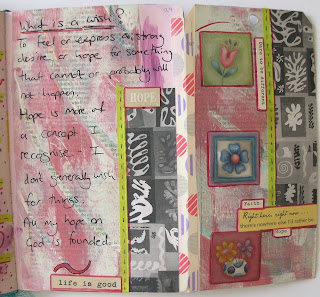 What is a wish?
To feel or express a strong
desire or hope for something
that cannot or probably will
not happen.
Hope is more of
a concept I
recognise. I
don't generally wish
for things.
All my hope on
God is founded.
HOPE
life is good
Dare to be different
faith
Right here, right now...
there's nowhere else I'd rather be.
hope